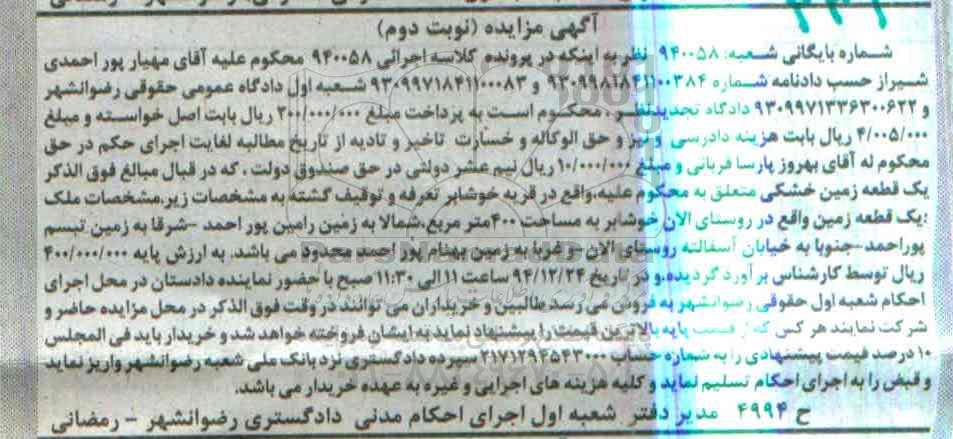 آگهی مزایده (نوبت دوم)
شماره بایگانی شعبه: ۹۴۰۰۵۸ نظر به اینکه در پرونده کلاسه اجرائی ۹۴۰۰۵۸ محکوم علیه آقای مهیار پور احمدی
شیراز حسب دادنامه شماره ۹۳۰۹۹۸۱۸۴۱۱۰۰۳۸۴ و ۹۳۰۹۹۷۱۸۴۱۱۰۰۰۸۳ شعبه اول دادگاه عمومی حقوقی رضوانشهر
و ۹۳۰۹۹۷۱۳۳۶۳۰۰۶۲۲ دادگاه تجدیدنظر، محکوم است به پرداخت مبلغ ۲۰۰/۰۰۰/۰۰۰ ریال بابت اصل خواسته و مبلغ
۴/۰۰۵/۰۰۰ ریال بابت هزینه دادرسی و نیز و حق الوکاله و خسارت تاخیر و تادیه از تاریخ مطالبه لغایت اجرای حکم در حق
محکوم له آقای بهروز پارسا قربانی و مبلغ ۱۰/۰۰۰/۰۰۰ ریال نیم عشر دولتی در حق صندوق دولت، که در قبال مبالغ فوق الذکر
یک قطعه زمین خشکی متعلق به محکوم علیه، واقع در قریه خوشابر تعرفه و توقیف گشته به مشخصات زیر. مشخصات ملک
:یک قطعه زمین واقع در روستای الان خوشابر به مساحت ۴۰۰متر مربع، شمالا به زمین رامین پور احمد -شرقا به زمین تبسم
پوراحمد-جنوبا به خیابان آسفالته روستای الان - و غربا به زمین بهنام پور احمد محدود می باشد. به ارزش پایه ۴۰۰/۰۰۰/۰۰۰
ریال توسط کارشناس برآورد گردیده، و در تاریخ ۹۴/۱۲/۲۴ ساعت ۱۱ الی ۱۱:۳۰ صبح با حضور نماینده دادستان در محل اجرای
احکام شعبه اول حقوقی رضوانشهر به فروش می رسد طالبین و خریداران می توانند در وقت فوق الذکر در محل مزایده حاضر و
شرکت نمایند هر کس که از قیمت پایه بالاترین قیمت را پیشنهاد نماید به ایشان فروخته خواهد شد و خریدار باید فی المجلس
۱۰ درصد قیمت پیشنهادی را به شماره حساب ۲۱۷۱۲۹۴۵۴۳۰۰۰ سپرده دادگستری نزد بانک ملی شعبه رضوانشهر واریز نماید
و قبض را به اجرای احکام تسلیم نماید و کلیه هزینه های اجرایی و غیره به عهده خریدار می باشد.
ح ۴۹۹۴ مدیر دفتر شعبه اول اجرای احکام مدنی دادگستری رضوانشهر - رمضانی